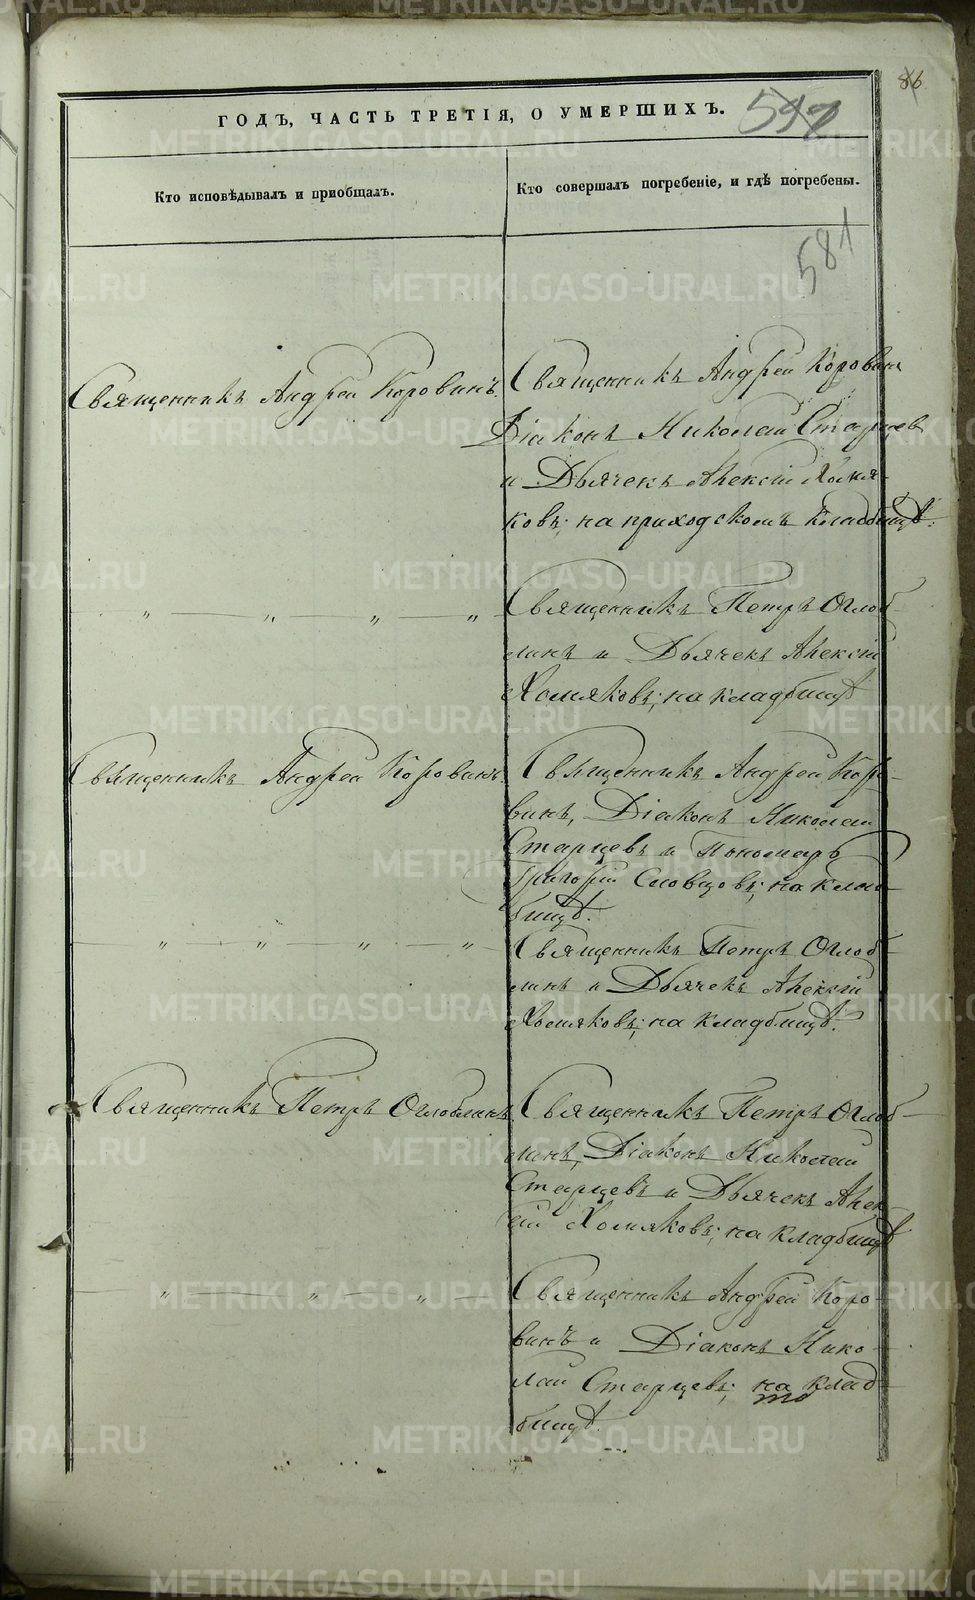 86
ГОДЪ, ЧАСТЬ ТРЕТІЯ, О УМЕРШИХЪ.
Кто исповѣдывалъ и пріобщалъ.
Кто совершалъ погребеніе, и гдѣ погребены.
581
Священникъ Андрей Коровинъ.
Священникъ Андрей Коровинъ
Діаконъ Николай Старцев
и Дьячекъ Алексій Хомя-
ковъ; на приходскомъ кладбищѣ.
" — " — " — "
Священникъ Петръ Оглоб-
линъ и Дьячекъ Алексій
Хомяковъ; на кладбищѣ
Священникъ Андрей Коровинъ.
Священникъ Андрей Коро-
винъ, Діаконъ Николай
Старцевъ и Пономарь
Григорій Словцовъ; на клад-
бищѣ.
" — " — " — "
Священникъ Петръ Оглоб-
линъ и Дьячекъ Алексій
Хомяковъ; на кладбищѣ.
Священникъ Петръ Оглоблинъ
Священникъ Петръ Оглоб-
линъ, Діаконъ Николай
Старцевъ и Дьячекъ Алек-
сій Хомяковъ; на кладбищѣ
" — " — "
Священникъ Андрей Коро-
винъ и Діаконъ Нико-
лай Старцевъ; на клад-
бищѣ.
METRIKI.GASO-URAL.RU